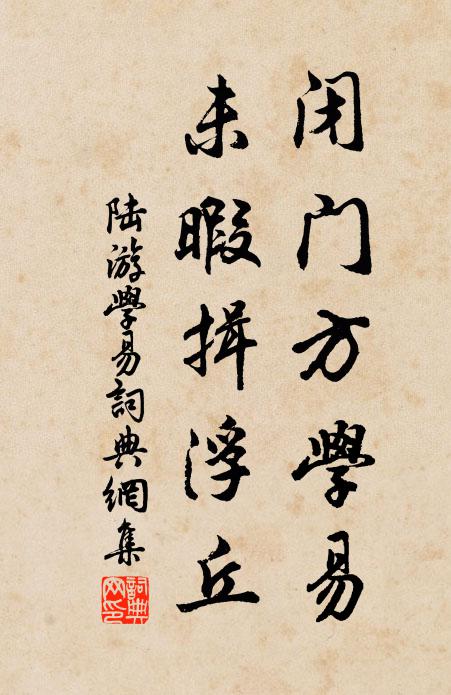 闭门方學易
未暇揖浮丘
陆游學易詞典網集
詞典網印